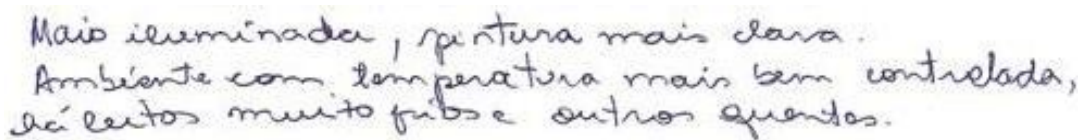 Mais iluminada, pintura mais clara.
Ambiente com temperatura mais bem controlada,
há leitos muito frios e outros quentes.